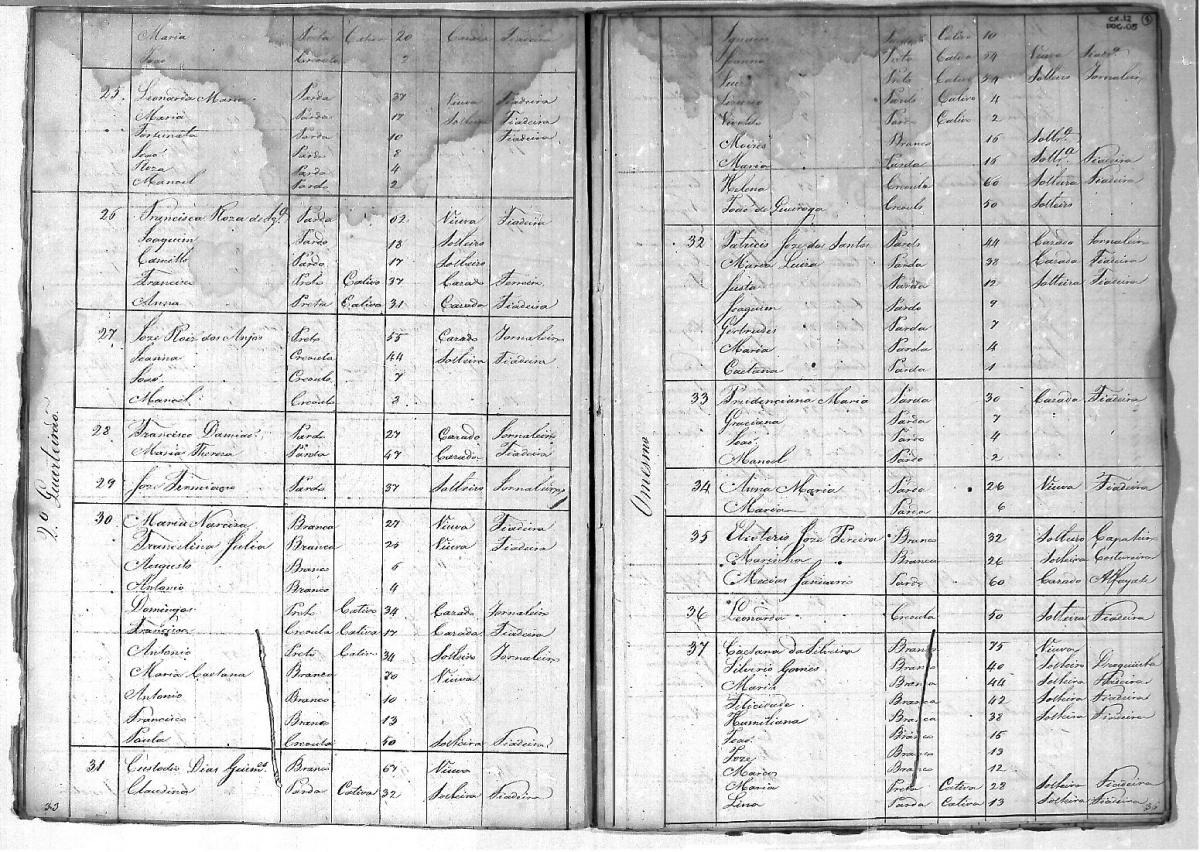 Maria Preta Cativa 20 Cazada Fiadeira
João Creoulo
25 Leonarda Maria Parda 37 Viuva Fiadeira
Maria Parda 17 Solteira Fiadeira
Fortunata Parda 10 Fiadeira
João Pardo 8
Roza Parda 4
Manoel Pardo 2
26 Francisca Roza de Parda 62 Viuva Fiadeira
Joaquim Pardo 18 Solteiro
Camillo Pardo 17 Solteiro
Francisco Preto Cativo 37 Cazado
Anna Preta Cativa 31 Cazada Fiadeira
27 Joze Roiz dos Anjos Preto 55 Cazado Jornaleiro
Joanna Creoula 44 Solteira Fiadeira
João Creoulo 7
Manoel Creoulo 3
28 Francisco Damião Pardo 27 Cazado Jornaleiro
Maria Thereza Parda 47 Cazada Fiadeira
29 Joze Pardo 37 Solteiro Jornaleiro
2.o Quarteirão
30 Maria Narciza Branca 27 Viuva Fiadeira
Francelina Julia Branca 25 Viuva Fiadeira
Augusto Branco 6
Antonio Branco 4
Domingos Preto Cativo 34 Cazado Jornaleiro
Creoula Cativa 17 Cazada Fiadeira
Antonio Preto Cativo 34 Solteiro Jornaleiro
Maria Caetana Branca 70 Viuva
Antonio Branco 10
Francisco Branco 13
Paula Creoula 50 Solteira Fiadeira
31 Custodio Dias Guim.es Branco 67 Viuvo
Claudina Parda Cativa 32 Solteira Fiadeira
35
CX.12
DOC.05
Cativo 10
Joanna Preta Cativa 54 Viuva
Preto Cativo 54 Solteiro Jornaleiro
Pardo Cativo 4
Pardo Cativo 2
Moizes Branco 16 Soltr.o
Maria Parda 16 Soltr.a Fiadeira
Helena Creoula 60 Solteira Fiadeira
João de Queiroga Creoulo 50 Solteiro
32 Patricio Joze dos Santos Pardo 44 Cazado Jornaleiro
Maria Luiza Parda 38 Cazada Fiadeira
Justa Parda 12 Solteira Fiadeira
Joaquim Pardo 9
Gertrudes Parda 7
Maria Parda 4
Caetana Parda 1
33 Prudenciana Maria Parda 30 Cazada Fiadeira
Graciana Parda 7
João Pardo 4
Manoel Pardo 2
O mesmo
34 Anna Maria Parda 26 Viuva Fiadeira
Maria Parda 6
35 Elioterio Joze Pereira Branco 32 Solteiro
Marinha Branca 26 Solteira Costureira
Mecias Januario Pardo 60 Cazado Alfayate
36 Leonarda Creoula 50 Solteira Fiadeira
37 Caetana da Silveira Branca 75 Viuva
Silverio Gomes Branco 40 Solteiro
Maria Branca 44 Solteira Fiadeira
Felicidade Branca 42 Solteira Fiadeira
Humiliana Branca 38 Solteira Fiadeira
João Branco 15
Joze Branco 13
Marcos Branco 12
Maria Preta Cativa 28 Solteira Fiadeira
Lina Parda Cativa 13 Solteira Fiadeira